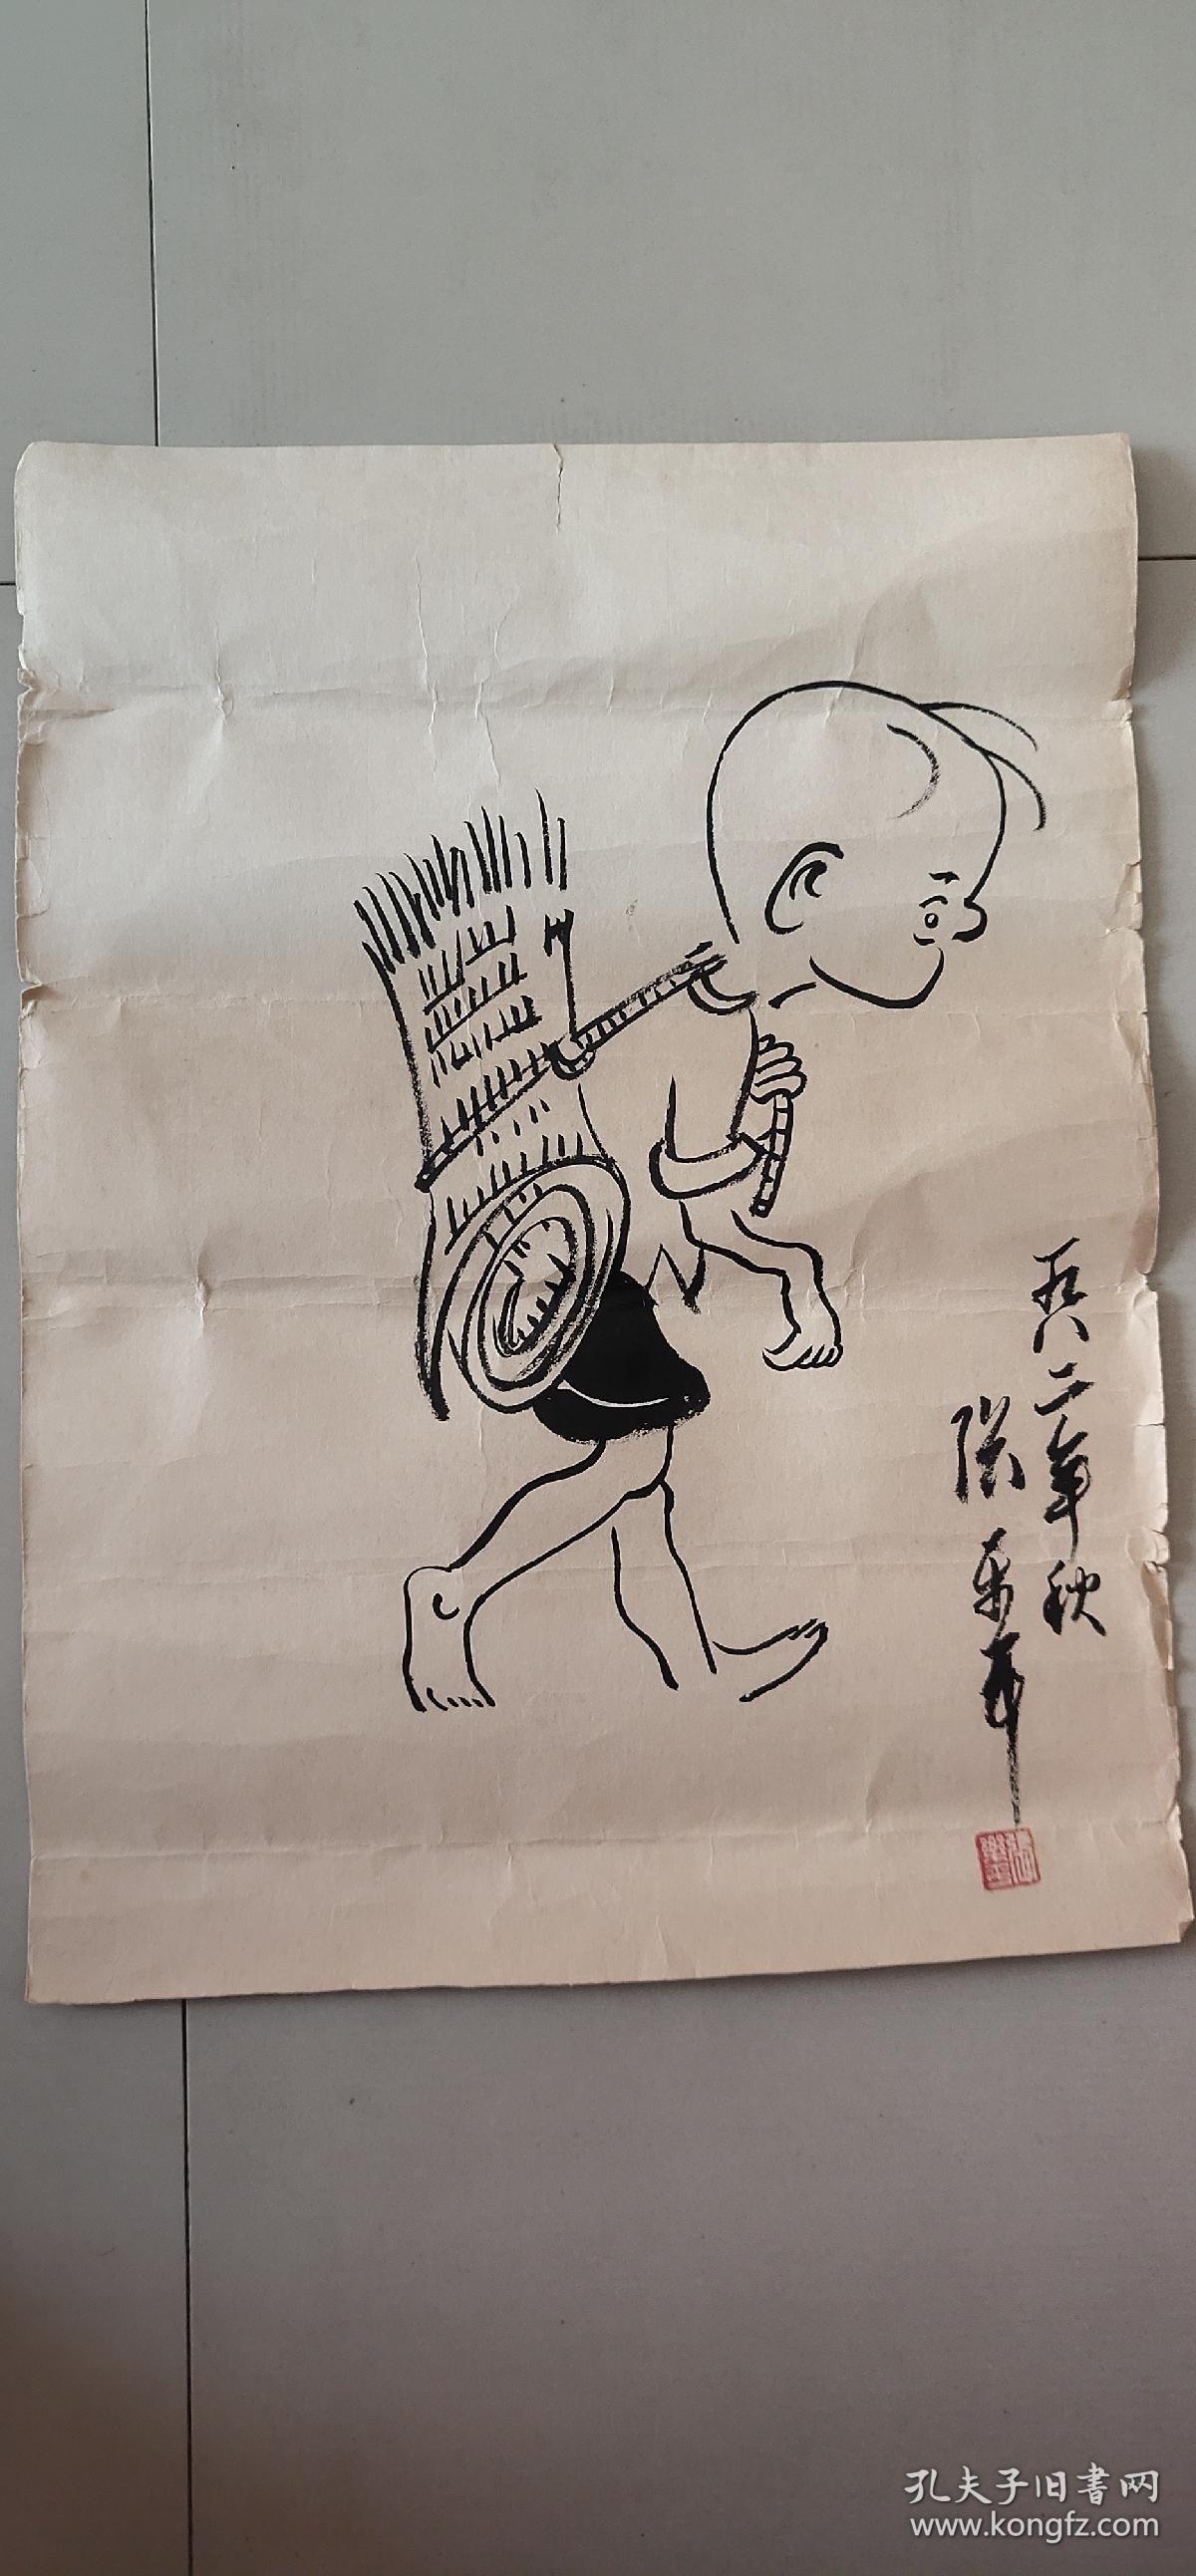 一九八二年秋
张乐平
张乐平
孔夫子旧書网
www.kongfz.com